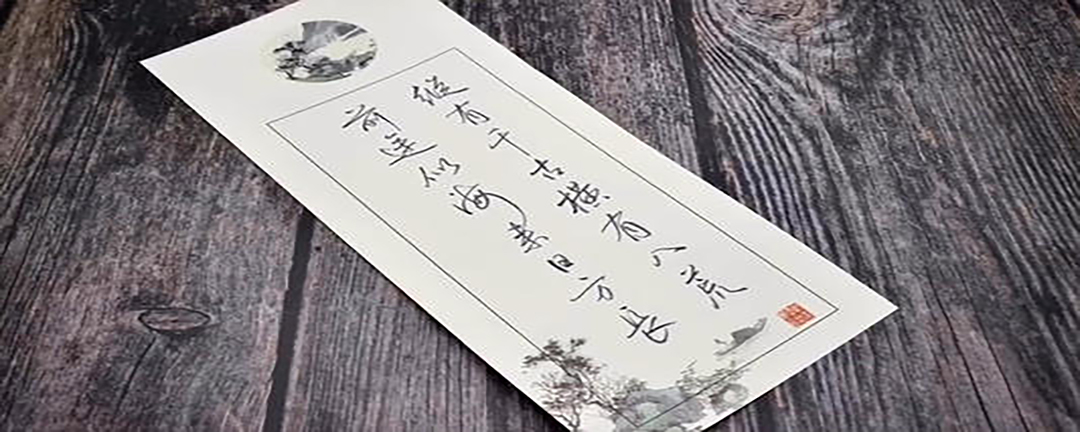 纵有千古横有八荒
前途似海来日方长